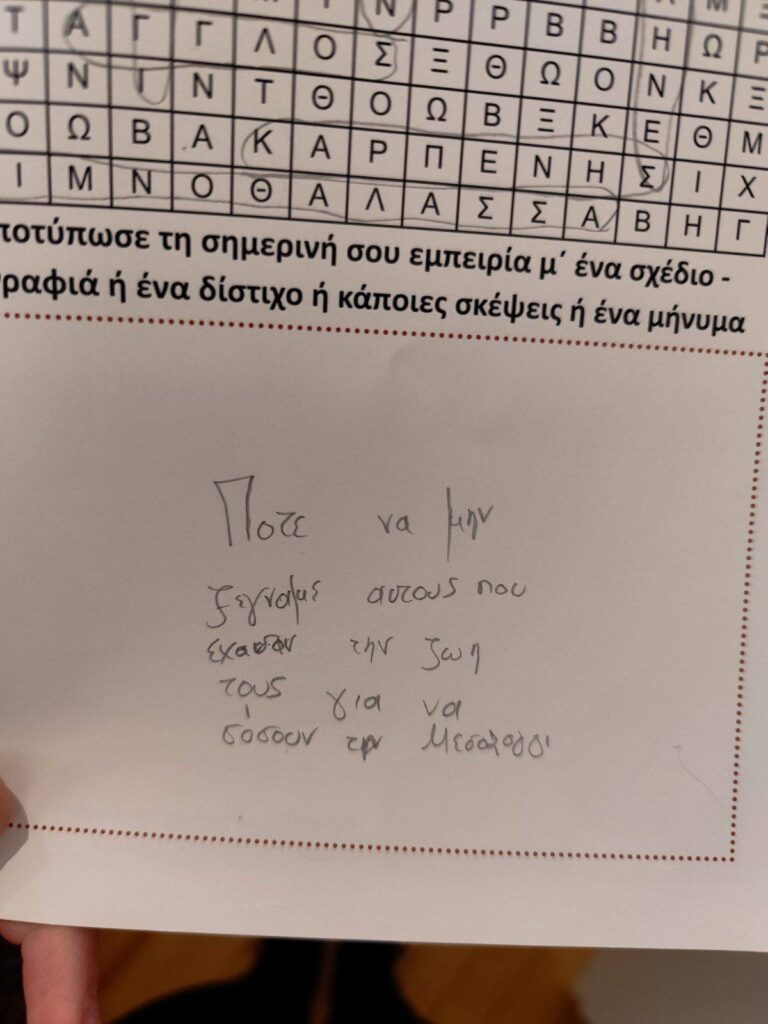 Ν Ρ Ρ Β Β Μ
Τ Α Γ Γ Λ Ο Σ Ξ Θ Ω Ο Η Ω Ρ
Ψ Ν Ι Ν Τ Θ Ο Ω Β Ξ Κ Ν Κ Ξ
Ο Ω Β Α Κ Α Ρ Π Ε Ν Η Ε Θ Μ
Ι Μ Ν Ο Θ Α Λ Α Σ Σ Α Σ Ι Χ
Β Η Γ
ποτύπωσε τη σημερινή σου εμπειρία μ΄ ένα σχέδιο -
ραφιά ή ένα δίστιχο ή κάποιες σκέψεις ή ένα μήνυμα
Ποτε να μην
ξεγναμε αυτους που
εχασαν την ζωη
τους για να
σόσουν την Μεσολογγι